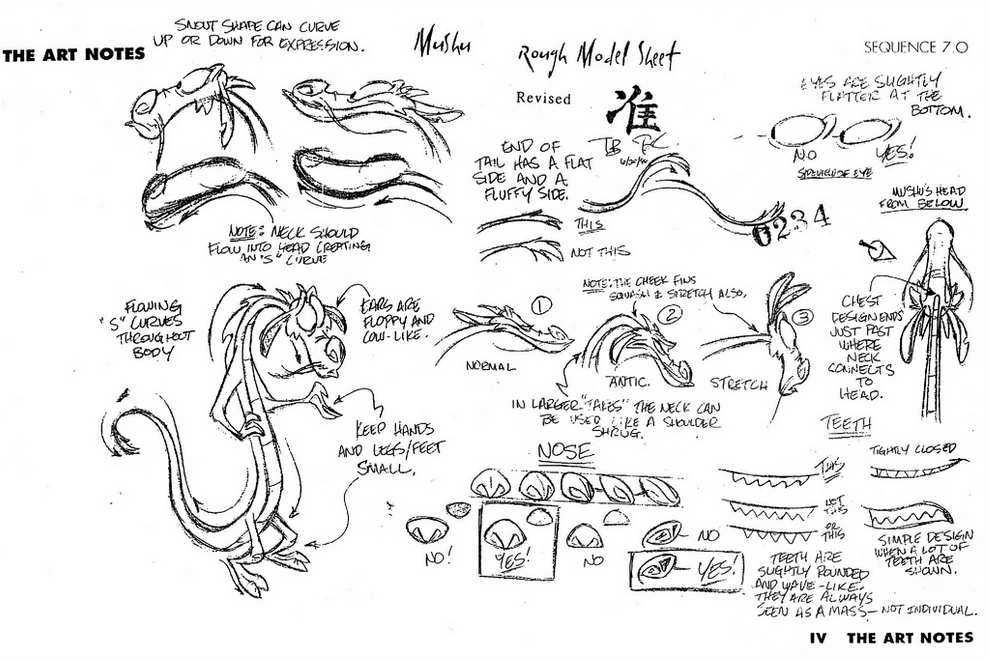 SNOUT SHAPE CAN CURVE
UP OR DOWN FOR EXPRESSION.
THE ART NOTES
Mushu
Rough Model Sheet
SEQUENCE 7.0
Revised
准
EYES ARE SLIGHTLY
FLATTER AT THE
BOTTOM.
NO
YES!
END OF
TAIL HAS A FLAT
SIDE AND A
FLUFFY SIDE.
THIS
NOT THIS
0234
MUSHU'S HEAD
FROM BELOW
NOTE: NECK SHOULD
FLOW INTO HEAD CREATING
AN "S" CURVE
FLOWING
"S" CURVES
THROUGHOUT
BODY
EARS ARE
FLOPPY AND
COW-LIKE.
NOTE: THE CHEEK FINS
SQUASH & STRETCH ALSO.
1
NORMAL
2
ANTIC.
3
STRETCH
CHEST
DESIGN ENDS
JUST PAST
WHERE
NECK
CONNECTS
TO
HEAD.
IN LARGER "TAKES" THE NECK CAN
BE USED LIKE A SHOULDER
SHRUG.
KEEP HANDS
AND LEGS/FEET
SMALL.
NOSE
NO!
YES!
NO
NO
YES!
TEETH
THIS
NOT
THIS
OR
THIS
TIGHTLY CLOSED
SIMPLE DESIGN
WHEN A LOT OF
TEETH ARE
SHOWN.
TEETH ARE
SLIGHTLY ROUNDED
AND WAVE-LIKE.
THEY ARE ALWAYS
SEEN AS A MASS - NOT INDIVIDUAL.
IV THE ART NOTES